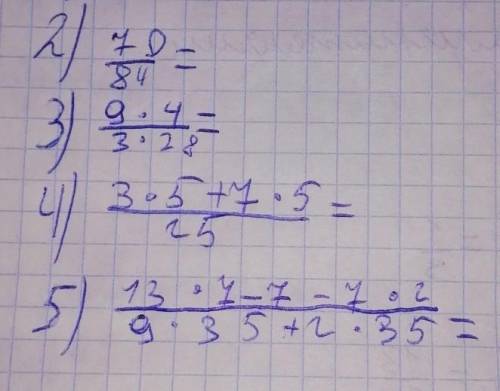 2) 70/84 =
3) 9·4/3·28 =
4) 3·5+7·5/25 =
5) 13·7-7-7·2/9·35+2·35 =